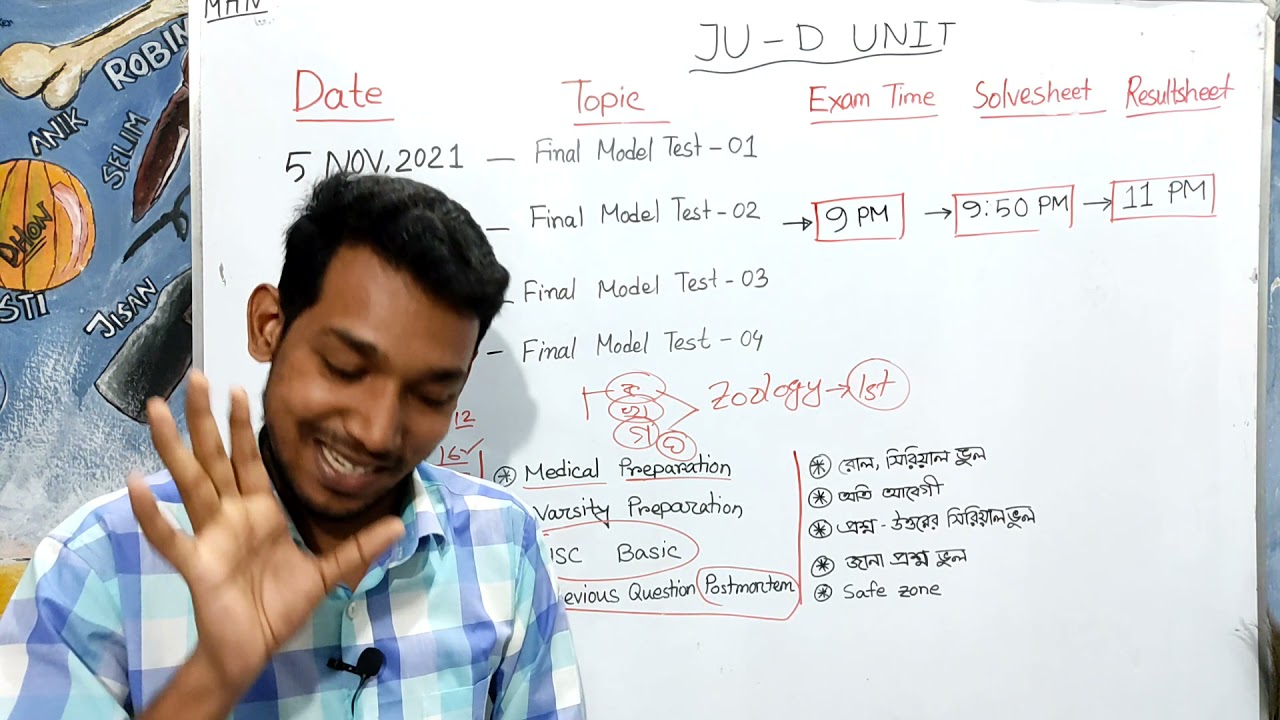 MAN
ROBIN
ANIK
SELIM
DHOW
STI
JISAN
JU - D UNIT
Date Topic Exam Time Solvesheet Resultsheet
5 NOV, 2021 — Final Model Test - 01
— Final Model Test - 02 → 9 PM → 9:50 PM → 11 PM
- Final Model Test - 03
- Final Model Test - 04
ক
খ
গ ঘ
Zoology → 1st
12
16✓
Medical Preparation
Varsity Preparation
HSC Basic
evious Question Postmortem
রোল, সিরিয়াল ভুল
অতি আবেগী
প্রশ্ন - উত্তরের সিরিয়াল ভুল
জানা প্রশ্ন ভুল
Safe zone